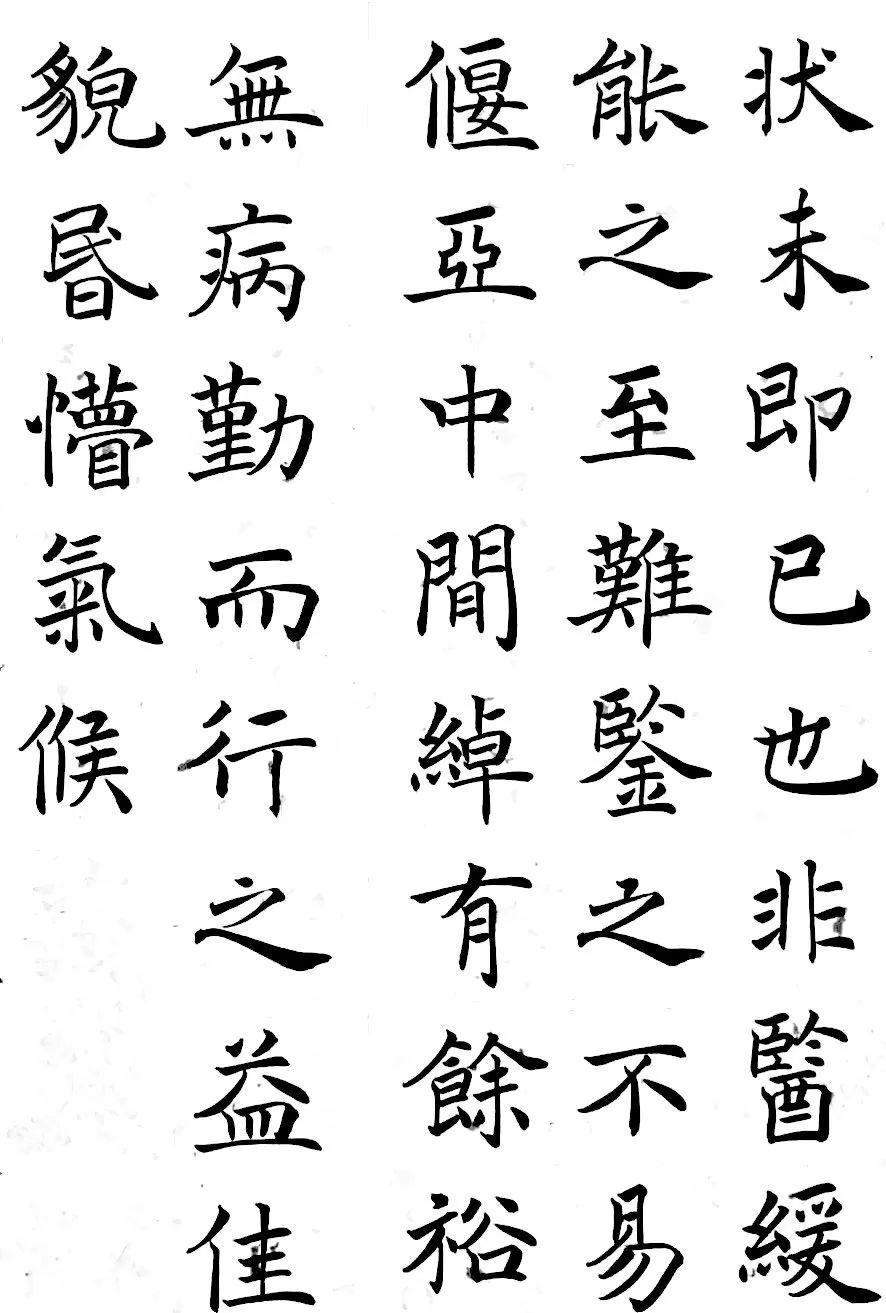 状未即已也非醫緩
能之至難鑒之不易
偃亞中間綽有餘裕
無病勤而行之益佳
貌昬懵氣候